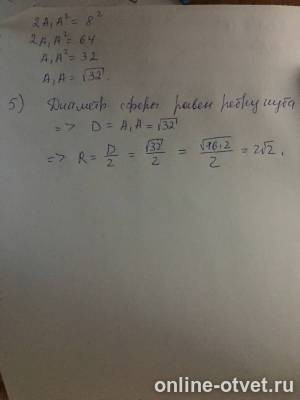 2A₁A² = 8²
2A₁A² = 64
A₁A² = 32
A₁A = √32.
5) Диаметр сферы равен ребру куба
=> D = A₁A = √32
=> R = D/2 = √32/2 = √16·2/2 = 2√2.
online-otvet.ru